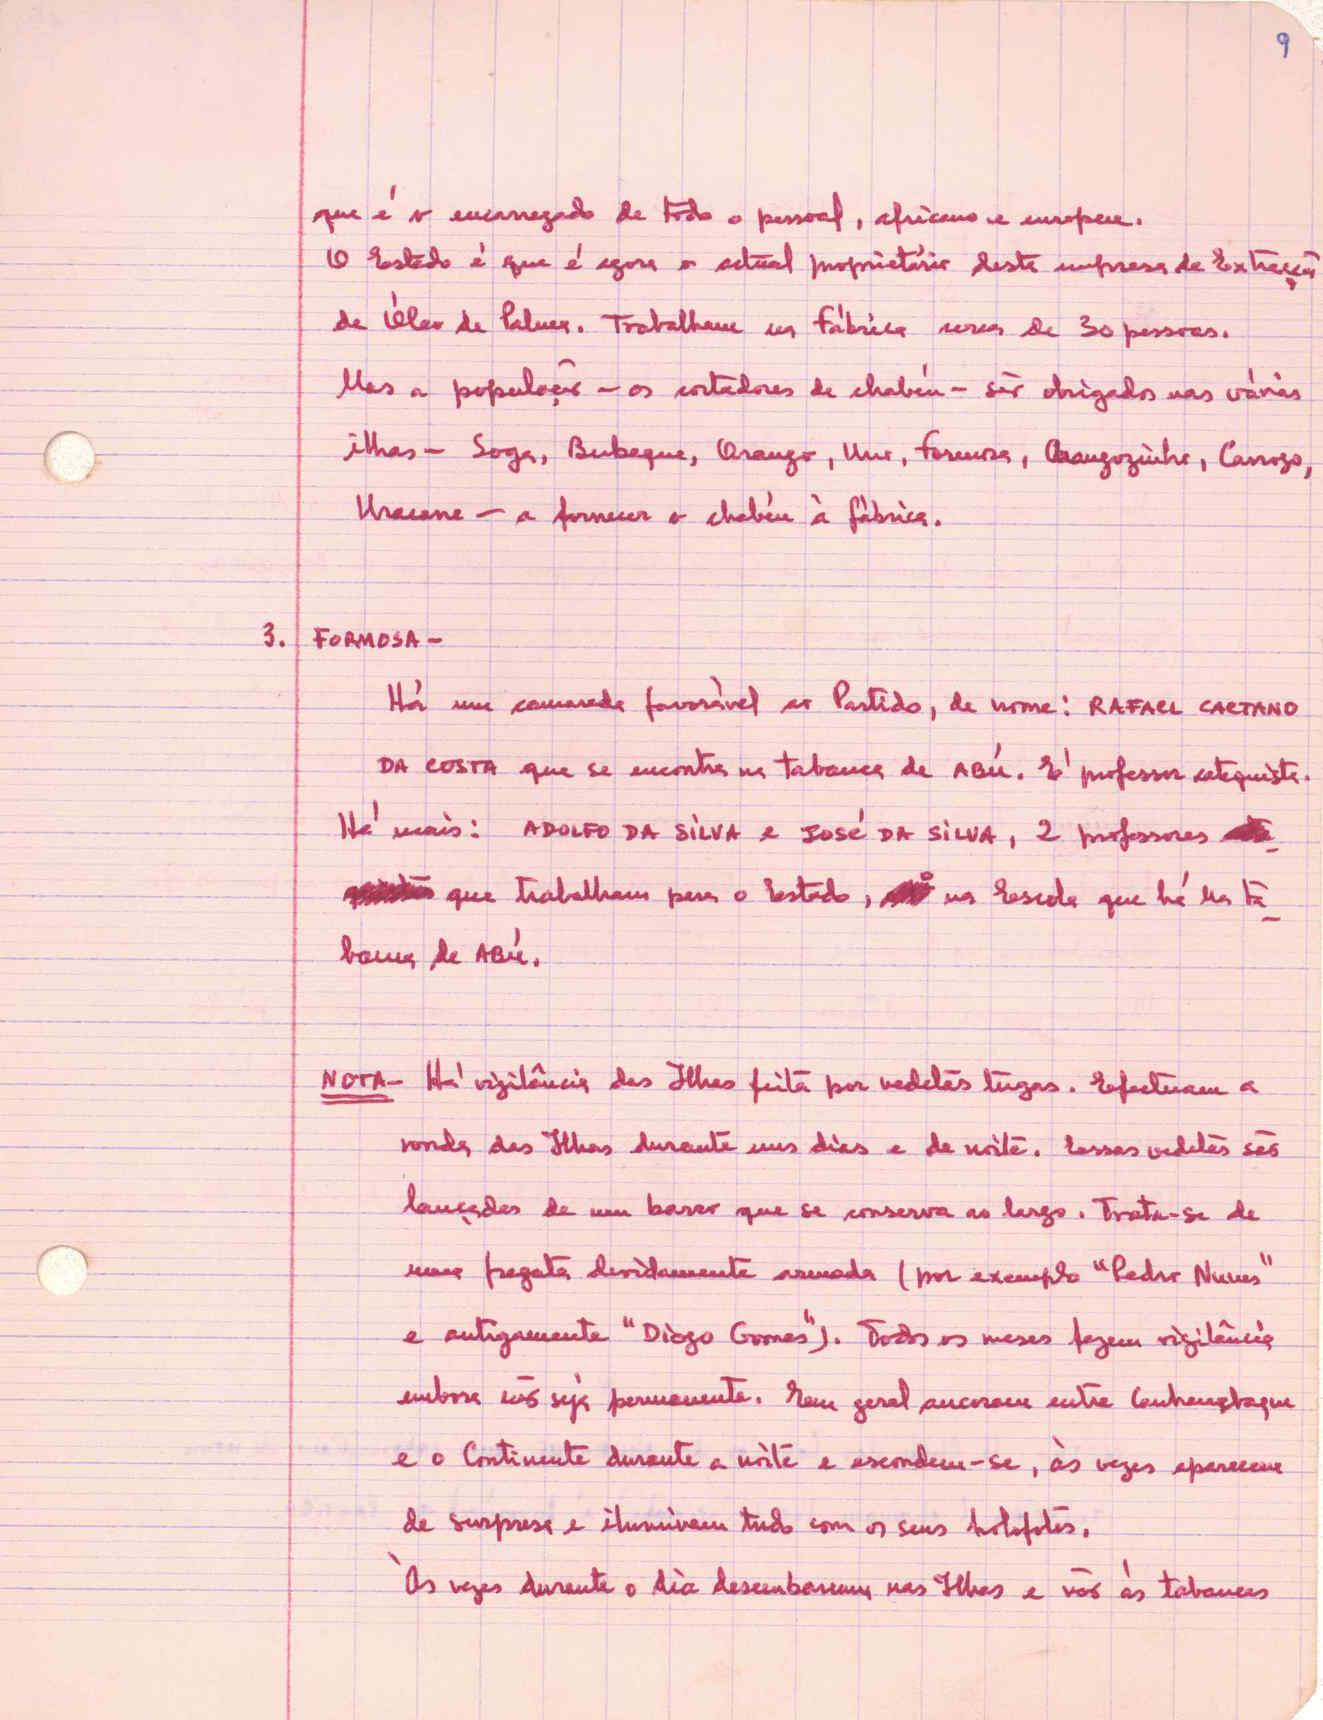 9
que é o encarregado de todo o pessoal, africano e europeu.
O Estado é que é agora o actual proprietário desta empresa de Extracção
de Óleo de Palma. Trabalham na fábrica cerca de 30 pessoas.
Mas a população – os cortadores de chabéu – são obrigados nas várias
ilhas – Soga, Bubaque, Orango, Uno, Formosa, Orangozinho, Carrogo,
Uracane – a fornecer o chabéu à fábrica.
3. FORMOSA –
Há um camarada favorável ao Partido, de nome: RAFAEL CAETANO
DA COSTA que se encontra na tabanca de ABÚ. É professor catequista.
Há mais: ADOLFO DA SILVA e JOSÉ DA SILVA, 2 professores
que trabalham para o Estado, na Escola que há na ta-
banca de ABÚ.
NOTA – Há vigilância das Ilhas feita por vedetas tugas. Efectuam a
ronda das Ilhas durante uns dias e de noite. Essas vedetas são
lançadas de um barco que se conserva ao largo. Trata-se de
uma fragata devidamente armada (por exemplo "Pedro Nunes"
e antigamente "Diogo Gomes"). Todos os meses fazem vigilância
embora não seja permanente. Em geral ancoram entre Canhambaque
e o Continente durante a noite e escondem-se, às vezes aparecem
de surpresa e iluminam tudo com os seus holofotes.
Às vezes durante o dia desembarcam nas Ilhas e vão às tabancas